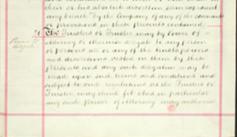 their or his absolute discretion
any breach by the Company of any of the covenants
or provisions in these presents contained
The Trustees or Trustee may by Power of
Attorney or otherwise delegate to any person
or persons all or any of the trusts powers
and discretions vested in them by these
presents and any such delegation may be
made upon such terms and conditions and
subject to such regulations as the Trustees or
Trustee may think fit and in particular
any such power of Attorney may authorise